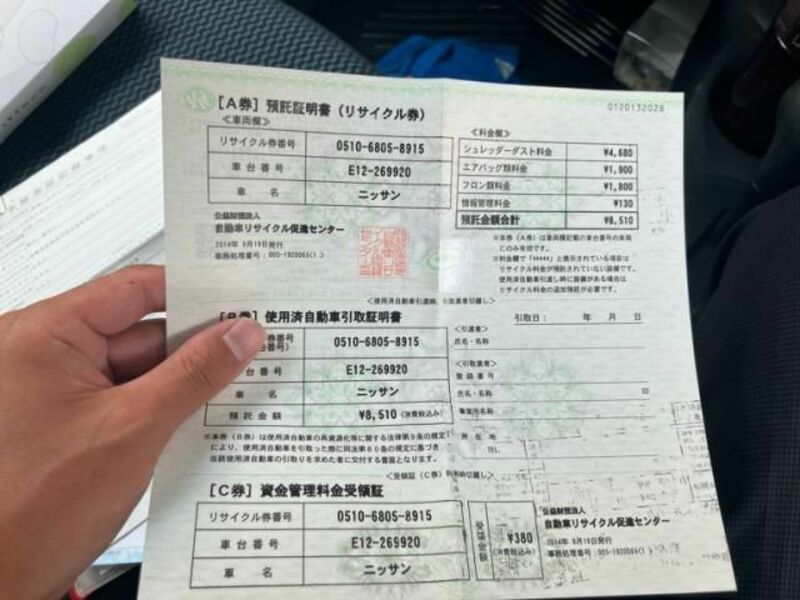 [A券] 預託証明書(リサイクル券)
0120132028
≪車両欄≫
リサイクル券番号 0510-6805-8915
車台番号 E12-269920
車名 ニッサン
≪料金欄≫
シュレッダーダスト料金 ¥4,680
エアバッグ類料金 ¥1,900
フロン類料金 ¥1,800
情報管理料金 ¥130
預託金額合計 ¥8,510
公益財団法人
自動車リサイクル促進センター
2014年 9月19日発行
※本券(A券)は車両欄記載の車台番号の車両
にのみ有効です。
※料金欄で「*****」と表示されている項目は
リサイクル料金が預託されていない装備です。
使用済自動車引渡し時に装備がある場合は
リサイクル料金の追加預託が必要です。
<使用済自動車引渡時、引取業者切離し>
[B券] 使用済自動車引取証明書
引取日: 年 月 日
券番号 0510-6805-8915
台番号 E12-269920
車名 ニッサン
預託金額 ¥8,510 (消費税込み)
<引渡者>
氏名・名称
<引取業者>
登録番号
氏名・名称 印
事業所名称
所在地
TEL
※本券(B券)は使用済自動車の再資源化等に関する法律第9条の規定
により、使用済自動車を引取った際に同法第80条の規定に基づき
当該使用済自動車の引取りを求めた者に交付する書面となります。
[C券] 資金管理料金受領証
リサイクル券番号 0510-6805-8915
車台番号 E12-269920
車名 ニッサン
受領金額 ¥380 (消費税込み)
公益財団法人
自動車リサイクル促進センター
2014年 9月19日発行